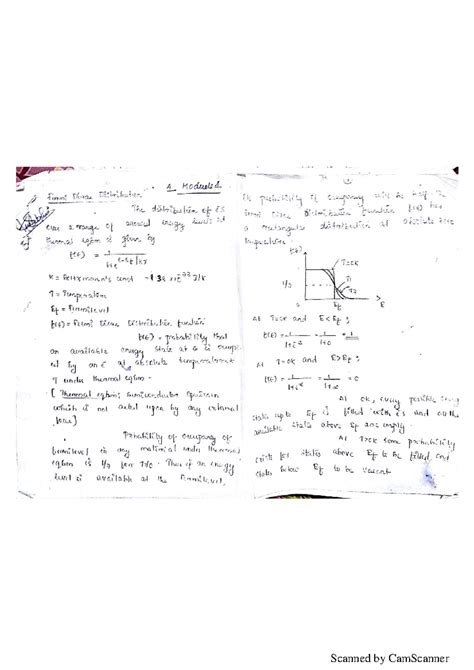 1. Module 1
Fermi Dirac Distribution
The distribution of e's
over a range of allowed energy level at
thermal eqbm is given by
f(E) = 1/1+e^(E-Ef/kT)
K = Boltzmann's const - 1.38 x 10^-23 J/K
T = Temperature
Ef = Fermi level
f(E) = Fermi Dirac Distribution function
f(E) = probability that
an available energy state at E is occupi
ed by an e at absolute temperature
T under thermal eqbm.
[Thermal eqbm: semiconductor specimen
which is not acted upon by any external
force]
Probability of occupancy of
Fermi level in any material under thermal
eqbm is 1/2 for T>0. Thus if an energy
level is available at the Fermi level,
its probability of occupancy will be half. The
Fermi Dirac Distribution function f(E) has
a rectangular distribution at absolute zero
temperature.
f(E)
T=0K
1
1/2
T1
T2
Ef
E
At T=0K and E<Ef;
f(E) = 1/1+e^-∞ = 1/1+0 = 1
At T=0K and E>Ef;
f(E) = 1/1+e^∞ = 1/1+∞ = 0
At 0K, every possible energy
state upto Ef is filled with e's and all the
available states above Ef are empty.
At T>0K some probability
exists for states above Ef to be filled and
states below Ef to be vacant
Scanned by CamScanner